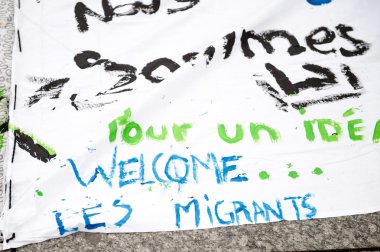 Nous
sommes
POUR UN IDÉA
WELCOME...
LES MIGRANTS